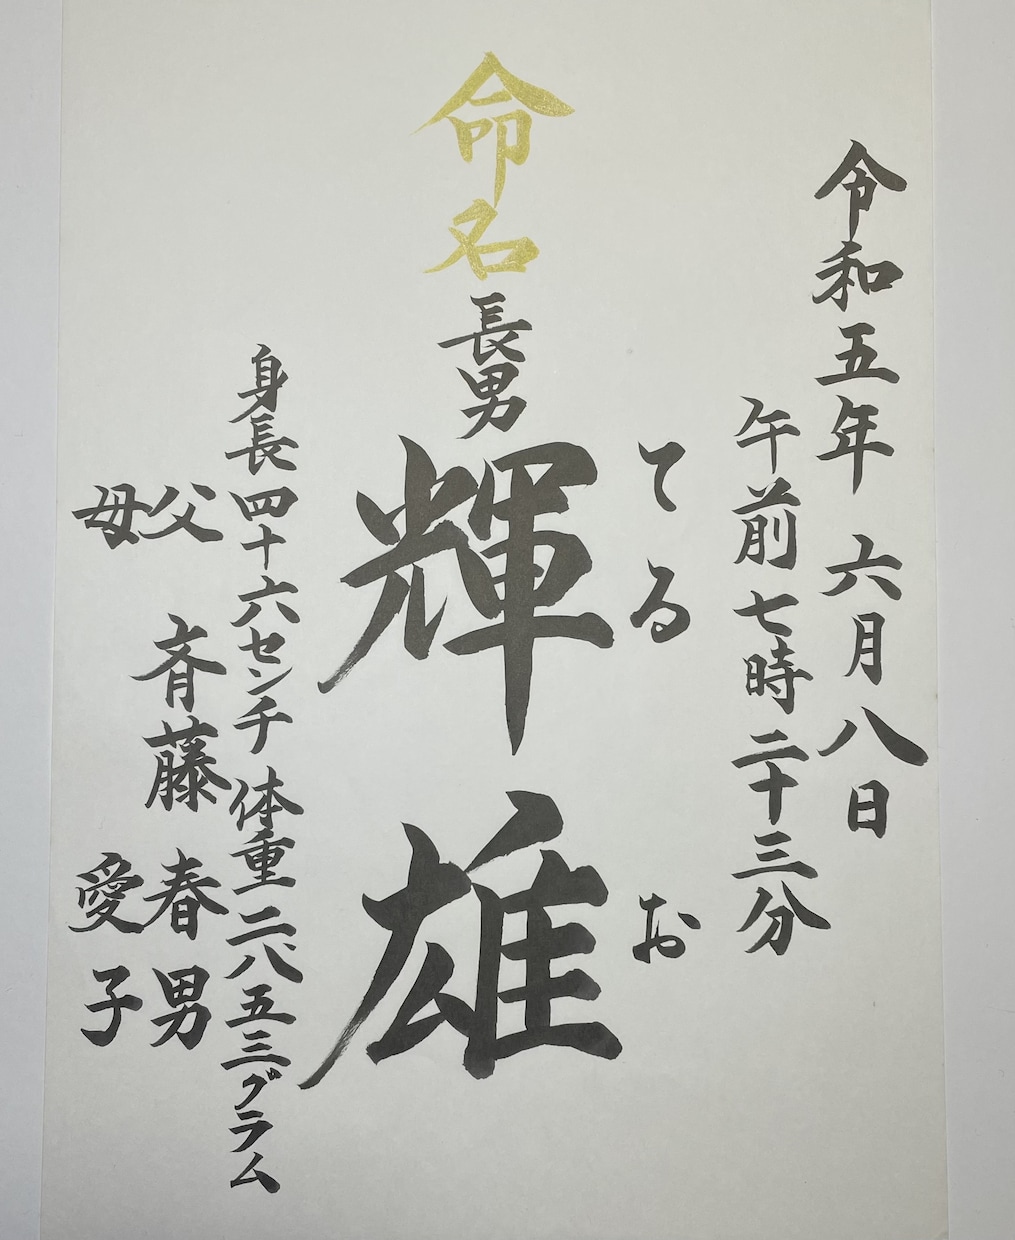 令和五年 六月八日
午前七時二十三分
てるお
命名
長男
輝雄
身長四十六センチ 体重二八五三グラム
父 斉藤 春男
母 愛子